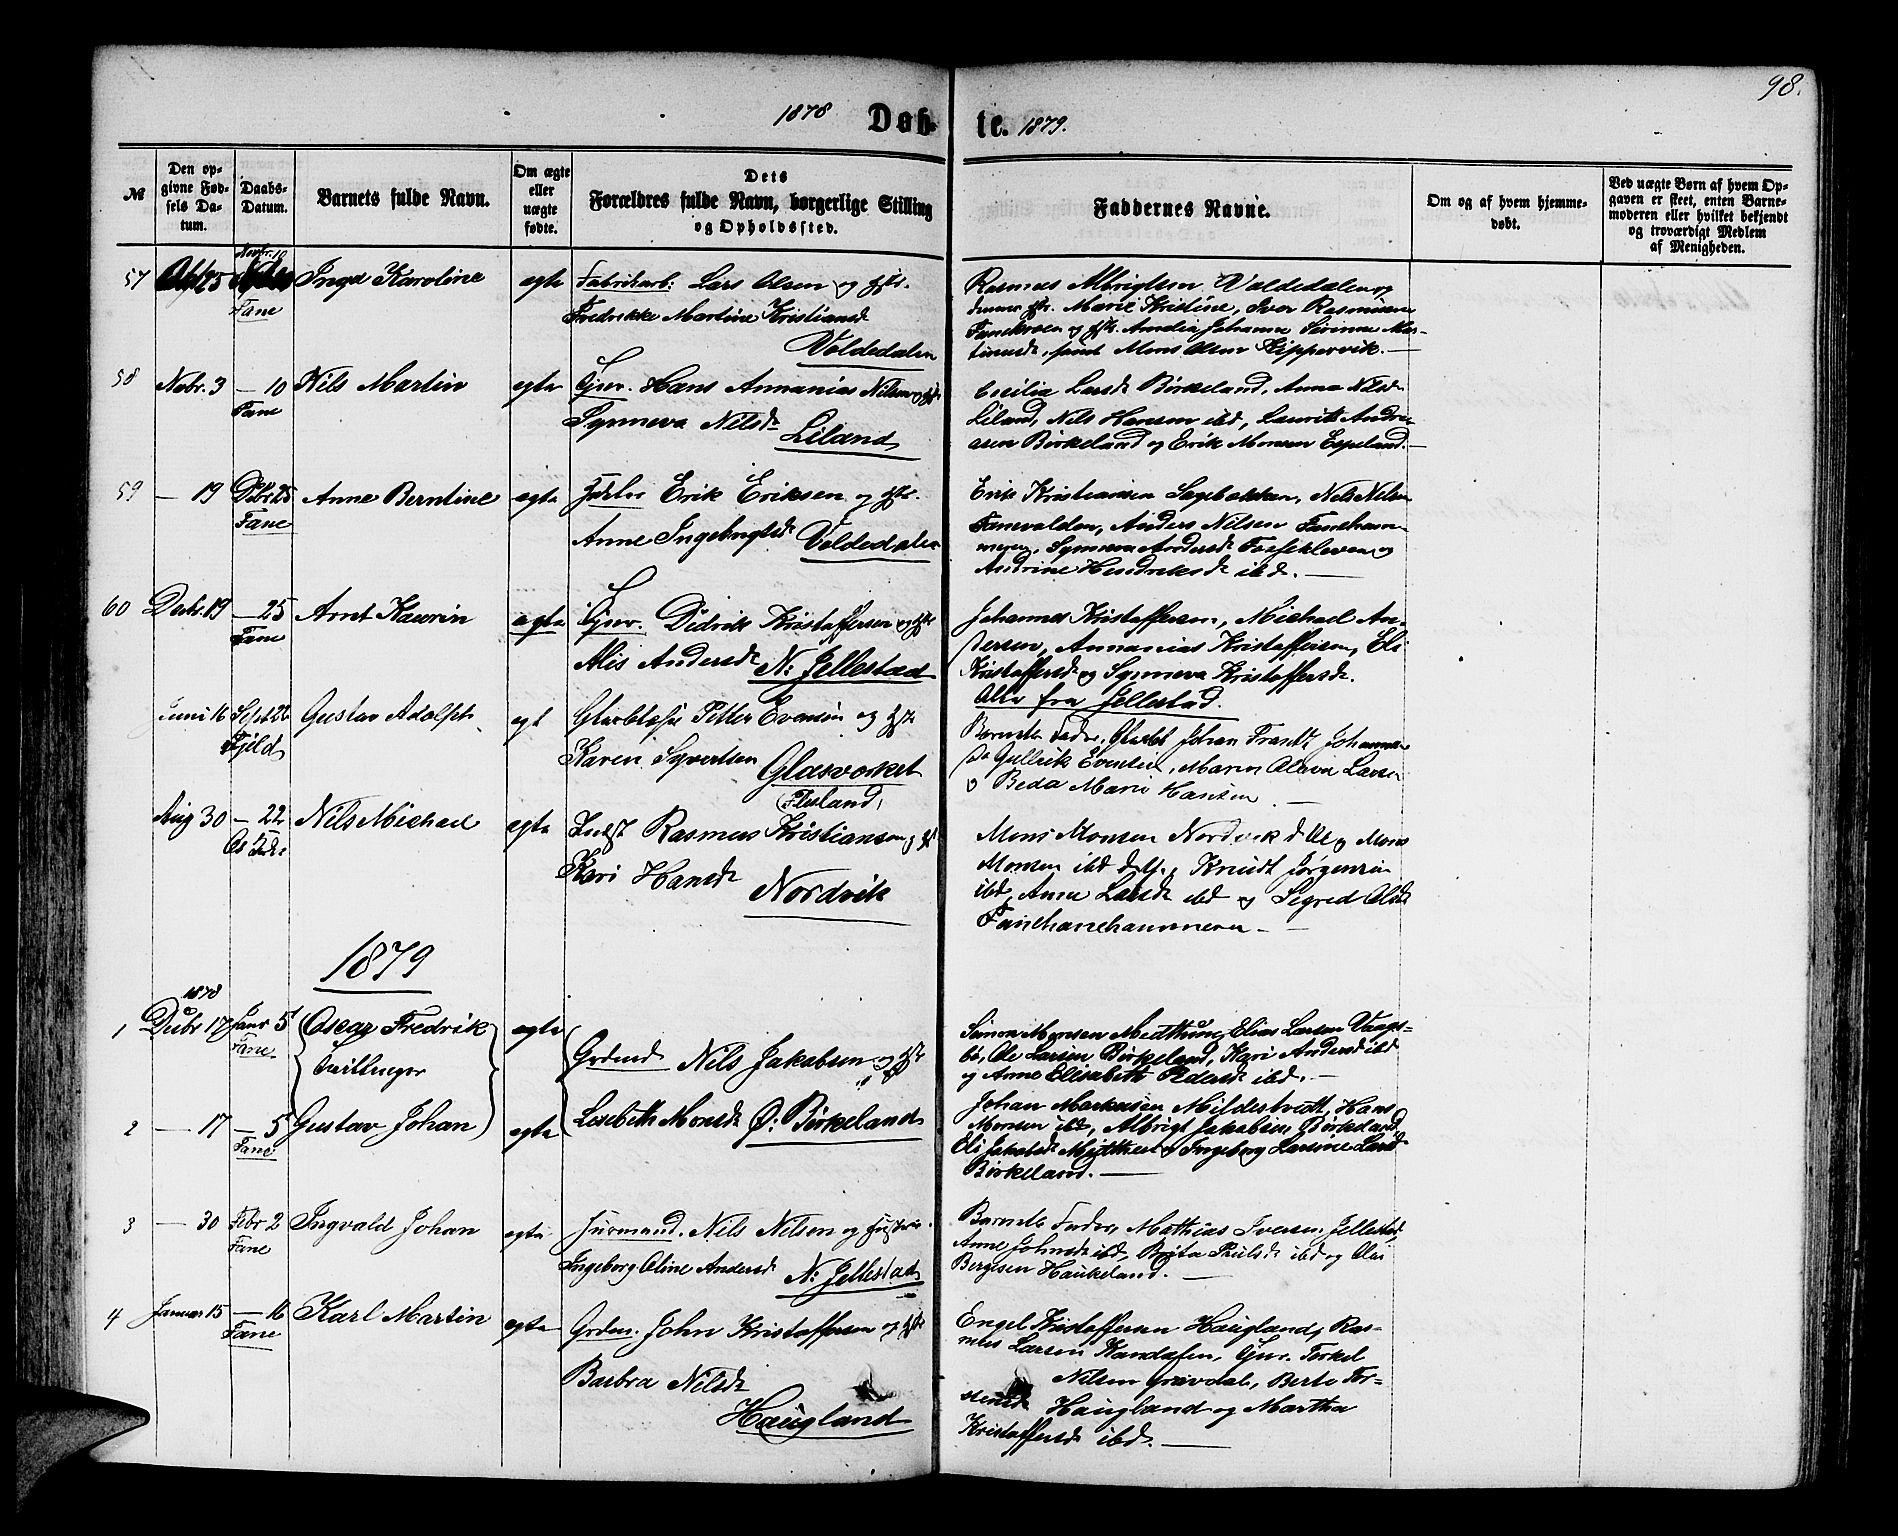 98.
1878 Døb- te. 1879.
№
Den op-
givne Fød-
sels Da-
tum.
Daabs-
Datum.
Barnets fulde Navn.
Om ægte
eller
uægte
fødte.
Dets
Forældres fulde Navn, borgerlige Stilling
og Opholdssted.
Faddernes Navne.
Om og af hvem hjemme-
døbt.
Ved uægte Børn af hvem Op-
gaven er skeet, enten Barne-
moderen eller hvilket bekjendt
og troværdigt Medlem
af Menigheden.
57 25 Novbr. 10 Fane
Inga Karoline
egte
Fabrikarb: Lars Olsen og
Fredrikke Martine Kristiansd
Voldedalen
Rasmus Albrigtsen Voldedalen og
Marie Kristine, Iver Rasmussen
Fanekroen og Amelia Johanna Serina
samt Mons Olsen Kippervik.
58 Nobr. 3 — 10 Fane
Nils Martin
egte
Gjør. Hans Annanias Nilsen og
Synneva Nilsd
Liland
Cecilia Larsd Birkeland, Anna Nilsd
Liland, Nils Hansen ibd, Laurits Andre-
asen Birkeland og Erik Monsen Espeland.
59 — 19 Debr. 25 Fane
Anne Berntine
egte
Erik Eriksen og
Anne Ingebrigtsd Voldedalen
Erik Kristiansen Sagebakken, Nels Nilsen
Fanevolden, Anders Nilsen Faneham-
meren, Synneva Andersd Fossekleven og
Andrine Hendriksd ibd.
60 Decbr. 19 — 25 Fane
Arnt Kawrin
egte
Gjør. Didrik Kristoffersen og
Alis Andersd N: Jellestad
Johannes Kristoffersen, Michael An-
dersen, Annanias Kristoffersen, Eli
Kristoffersd og Synneva Kristoffersd.
Alle fra Jellestad.
Juni 16 Sept 22 Fjeld
Gustav Adolph
egt
Petter Evensen og
Karen Syvertsen Glasværket
(Flesland)
Barnets Fader, Johan Frantz
Gullerik Evensen, Maren Olava Larsen
og Beda Marie Hansen
Aug 30 — 22 Os
Nils Michael
egte
Rasmus Kristiansen og
Kari Hansd
Nordvik
Mons Monsen Nordvik og Mons
Monsen ibd Knudt Jørgensen
ibd, Anne Larsd ibd og Sigred Olsd
Fanehammeren
1879
1 1878 Debr 17 Janr 5 Fane
Oscar Fredrik
tvillinger
egte
Grdmd Nils Jakobsen og
Lisebeth Monsd Ø: Birkeland
Simon Monsen Midthun, Elias Larsen Vaags-
bø, Ole Larsen Birkeland, Kari Andersd ibd
og Anne Elisabeth Pedersd ibd.
2 — 17 — 5 Fane
Gustav Johan
egte
Johan Markusen Mildestvedt, Hans
Monsen ibd, Albrigt Jakobsen Birkeland,
Eli Jakobsd Midthun og Ingeborg Larsine Larsd
Birkeland.
3 — 30 Febr 2 Fane
Ingvald Johan
egte
Husmand. Nils Nilsen og
Ingeborg Oline Andersd N: Jellestad
Barnets Fader, Mathias Iversen Jellestad,
Anne Johnsd ibd, Brita Paulsd ibd og
Børgesen Haukeland.
4 Januar 15 — 16 Fane
Karl Martin
egte
Grdm. John Kristoffersen og
Barbra Nilsd
Haugland
Engel Kristoffersen Haugland, Ras-
mus Larsen Kandalen, Gjør. Terkel
Nilsen Gravdal, Berte Tor-
stensd Haugland og Martha
Kristoffersd ibd.